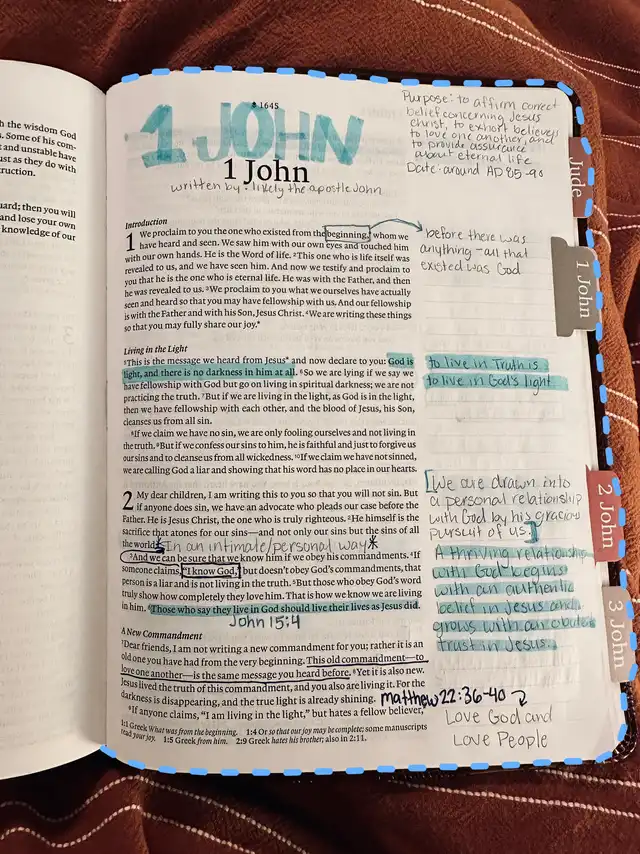 h the wisdom God
s. Some of his com-
t and unstable have
ust as they do with
ruction.
uard; then you will
and lose your own
knowledge of our
1645
1 JOHN
1 John
written by: likely the apostle John
Purpose: to affirm correct
belief concerning Jesus
Christ, to exhort believers
to love one another, and
to provide assurance
about eternal life
Date: around AD 85-90
Jude
1 John
2 John
3 John
Introduction
1 We proclaim to you the one who existed from the beginning, whom we
have heard and seen. We saw him with our own eyes and touched him
with our own hands. He is the Word of life. 2This one who is life itself was
revealed to us, and we have seen him. And now we testify and proclaim to
you that he is the one who is eternal life. He was with the Father, and then
he was revealed to us. 3We proclaim to you what we ourselves have actually
seen and heard so that you may have fellowship with us. And our fellowship
is with the Father and with his Son, Jesus Christ. 4We are writing these things
so that you may fully share our joy.*
before there was
anything - all that
existed was God
Living in the Light
5This is the message we heard from Jesus* and now declare to you: God is
light, and there is no darkness in him at all. 6So we are lying if we say we
have fellowship with God but go on living in spiritual darkness; we are not
practicing the truth. 7But if we are living in the light, as God is in the light,
then we have fellowship with each other, and the blood of Jesus, his Son,
cleanses us from all sin.
8If we claim we have no sin, we are only fooling ourselves and not living in
the truth. 9But if we confess our sins to him, he is faithful and just to forgive us
our sins and to cleanse us from all wickedness. 10If we claim we have not sinned,
we are calling God a liar and showing that his word has no place in our hearts.
to live in Truth is
to live in God's light
2 My dear children, I am writing this to you so that you will not sin. But
if anyone does sin, we have an advocate who pleads our case before the
Father. He is Jesus Christ, the one who is truly righteous. 2He himself is the
sacrifice that atones for our sins—and not only our sins but the sins of all
the world.
* In an intimate/personal way *
3And we can be sure that we know him if we obey his commandments. 4If
someone claims, "I know God," but doesn't obey God's commandments, that
person is a liar and is not living in the truth. 5But those who obey God's word
truly show how completely they love him. That is how we know we are living
in him. 6Those who say they live in God should live their lives as Jesus did.
John 15:4
[We are drawn into
a personal relationship
with God by his gracious
pursuit of us.]
A thriving relationship
with God begins
with an authentic
belief in Jesus and
grows with an
trust in Jesus.
A New Commandment
7Dear friends, I am not writing a new commandment for you; rather it is an
old one you have had from the very beginning. This old commandment—to
love one another—is the same message you heard before. 8Yet it is also new.
Jesus lived the truth of this commandment, and you also are living it. For the
darkness is disappearing, and the true light is already shining.
9If anyone claims, "I am living in the light," but hates a fellow believer,
Matthew 22:36-40
Love God and
Love People
1:1 Greek What was from the beginning. 1:4 Or so that our joy may be complete; some manuscripts
read your joy. 1:5 Greek from him. 2:9 Greek hates his brother; also in 2:11.